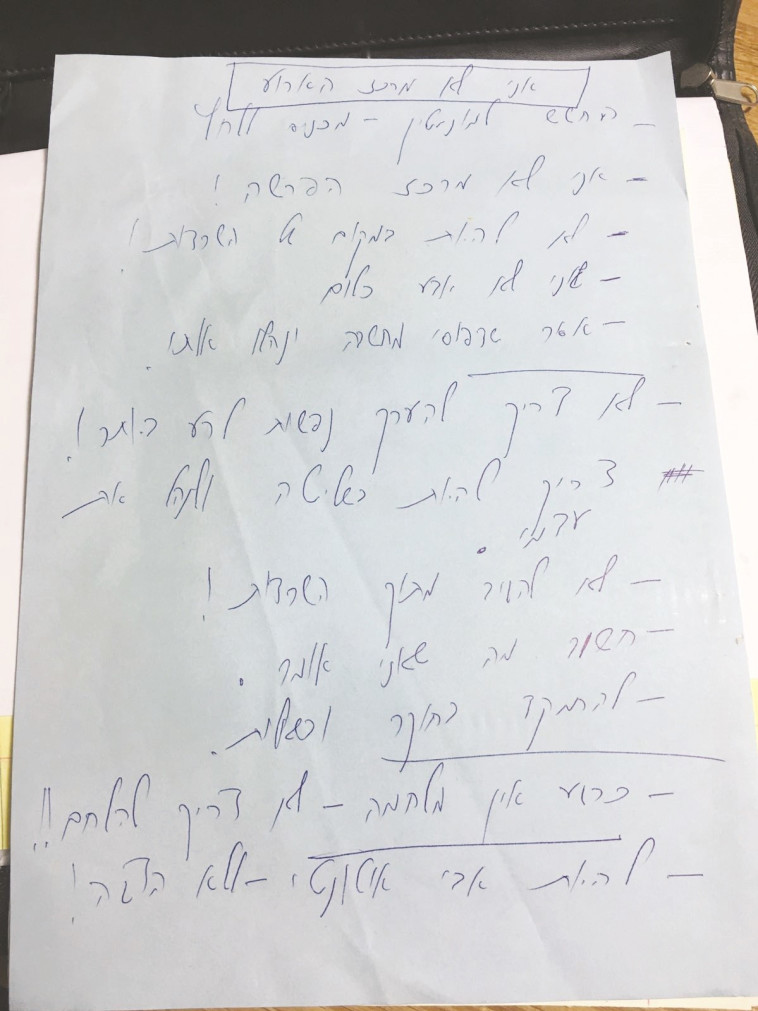 אני לא מרכז הארוע
- החשש למוניטין - מכניס ללחץ
- אני לא מרכז הפרשה!
- לא להיות במקום של השרדות!
- שאני לא יודע כלום
- אסור שדפוסי מחשבה ינהלו אותי.
- לא צריך להערך נפשות לרע ביותר!
צריך להיות בשליטה ולנהל את
עצמי.
- לא להגיב מתוך השרדות!
- חשוב מה שאני אומר.
- להתמקד בחוקר ובשאלות.
- כרגע אין מלחמה - לא צריך להלחם!!
- להיות אבי אוטנטי - ללא הצגה!